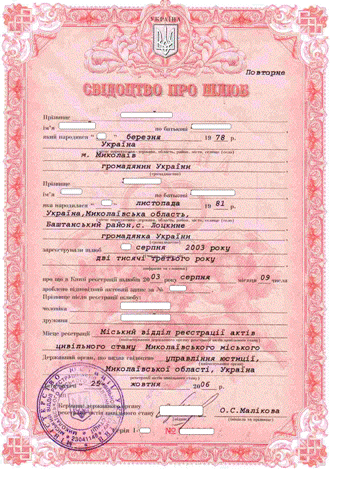 УКРАЇНА
Повторне
СВІДОЦТВО ПРО ШЛЮБ
Прізвище
ім'я по батькові
який народився " " березня 19 78 р.
Україна
м. Миколаїв
громадянин України
Прізвище
ім'я по батькові
яка народилась " " листопада 19 81 р.
Україна,Миколаївська область,
Баштанський район,с. Лоцкине
громадянка України
зареєстрували шлюб серпня 2003 року
дві тисячі третього року
про що в Книзі реєстрації шлюбів 20 03 року серпня місяця 09 числа
зроблено відповідний актовий запис за №
Прізвище після реєстрації шлюбу:
чоловіка
дружини
Місце реєстрації Міський відділ реєстрації актів
цивільного стану Миколаївського міського
Державний орган, що видав свідоцтво управління юстиції,
Миколаївської області, Україна
25 жовтня 2006 р.
Керівник державного
органу реєстрації
актів цивільного стану О.С.Малікова
Серія І- №